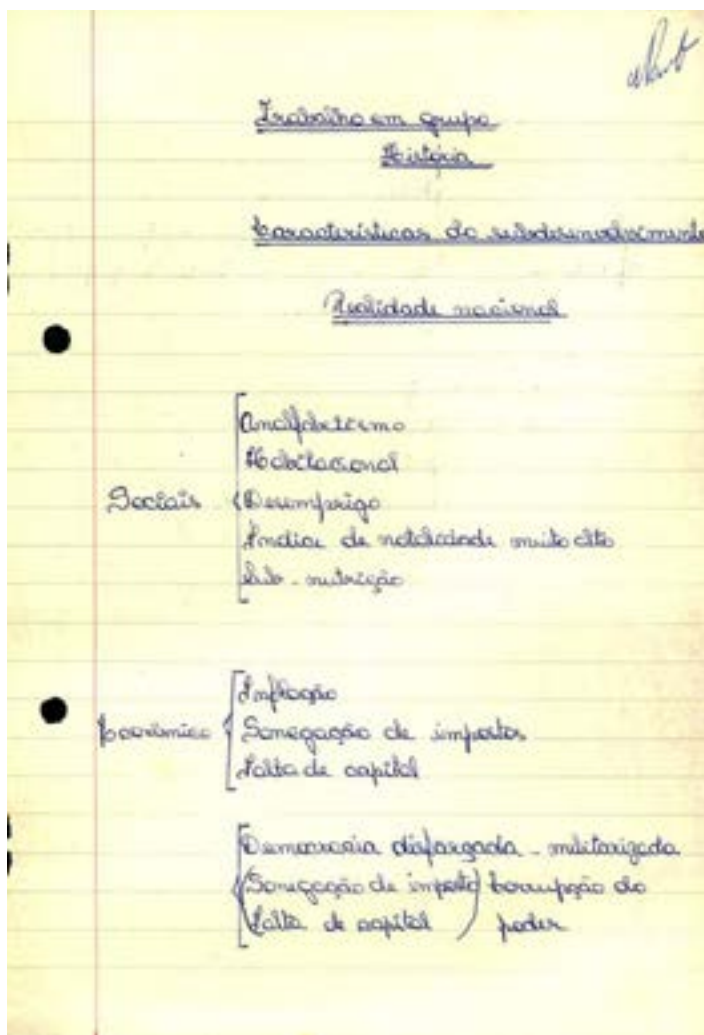 Trabalho em grupo
História
Características do subdesenvolvimento
Realidade nacional
Sociais
Analfabetismo
Habitacional
Desemprego
Índice de natalidade muito alto
Sub-nutrição
Econômico
Inflação
Sonegação de impostos
Falta de capital
Democracia disfarçada - militarizada
(Sonegação de imposto) Corrupção do
(Falta de capital) poder